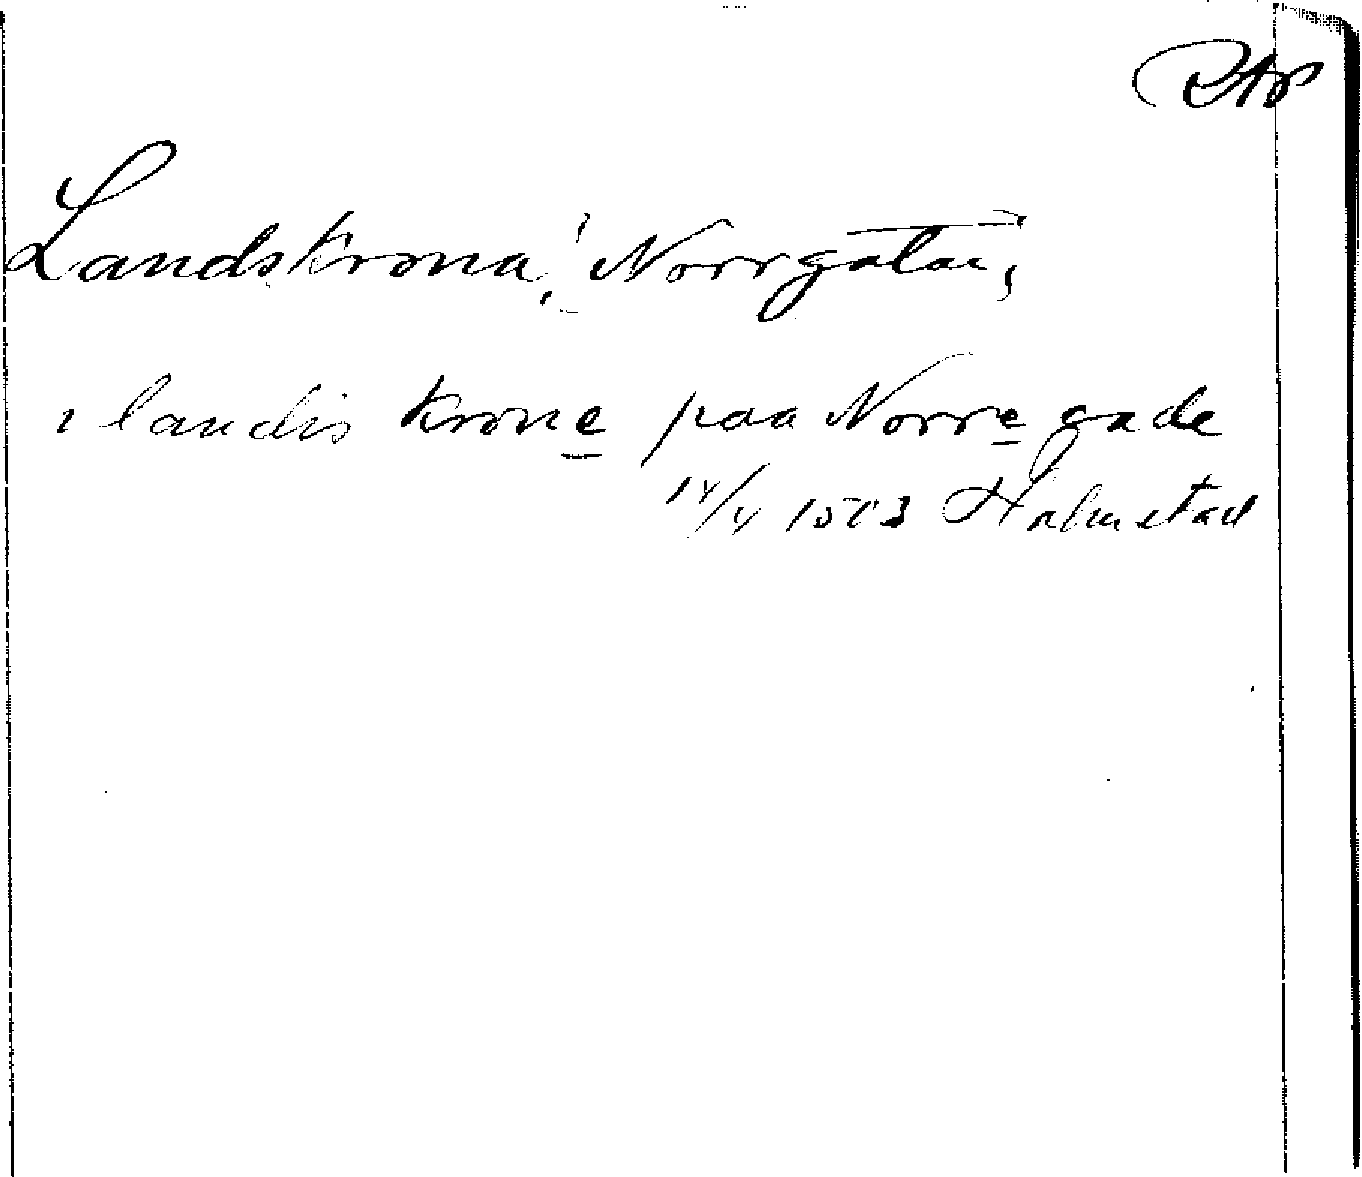 Landskrona, Norrgatan,
i landis krone paa Norre gade
14/4 1503 Halmstad